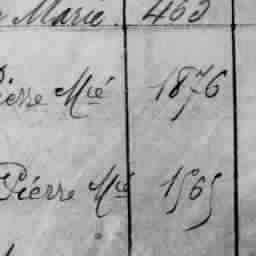 Marie. 463
Pierre Mié 1876
Pierre Mié 1565